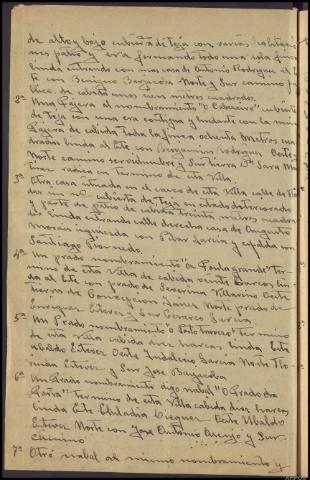 de alto y bajo cubierta de teja con varias
mas patio y era formando todo una sola finca
linda entrando con mas casa de Antonio Rodriguez al
te con Benigno Bagacoa Norte y Sur camino pu
blico. de cabida unos cien metros cuadrados.
2ª Una Pajera al nombramiento "O" cubierta
de teja con una era contigua y lindante con la misma
Pajera de cabida toda la finca ochenta metros cua
drados linda al Este con Benjamin Rodriguez Oeste
Norte camino servidumbre y Sur tierra Dª Sara
radica en termino de esta Villa.
3ª Otra casa situada en el casco de esta Villa calle de
nº cubierta de teja en estado deteriorado
y parte de patio de cabida treinta metros cuadra
dos linda entrando calle derecha casa de Augusto
Moran izquierda con Pilar Garcia y espalda con
Santiago
4ª Un prado nombramiento "a Poula grande" ter
mino de esta Villa de cabida veinte barcos lin
da al Este con prado de Severino Villarino Oeste
tierra de Concepcion Janez Norte prado de
Enriquez Estevez y Sur Gerardo
5ª Un Prado nombramiento "o" termino
de esta Villa cabida diez harcas linda Este
Ubaldo Estevez Oeste Indalecio Garcia Norte Flo
rinda Estevez y Sur Jose Bagacoa
6ª Un Prado nombramiento digo nabal "O Prado da
" termino de esta Villa cabida diez harcas
linda Este Eduladia Oeste Ubaldo
Estevez Norte con Jose Antonio y Sur
camino
7ª Otro nabal al mismo nombramiento y